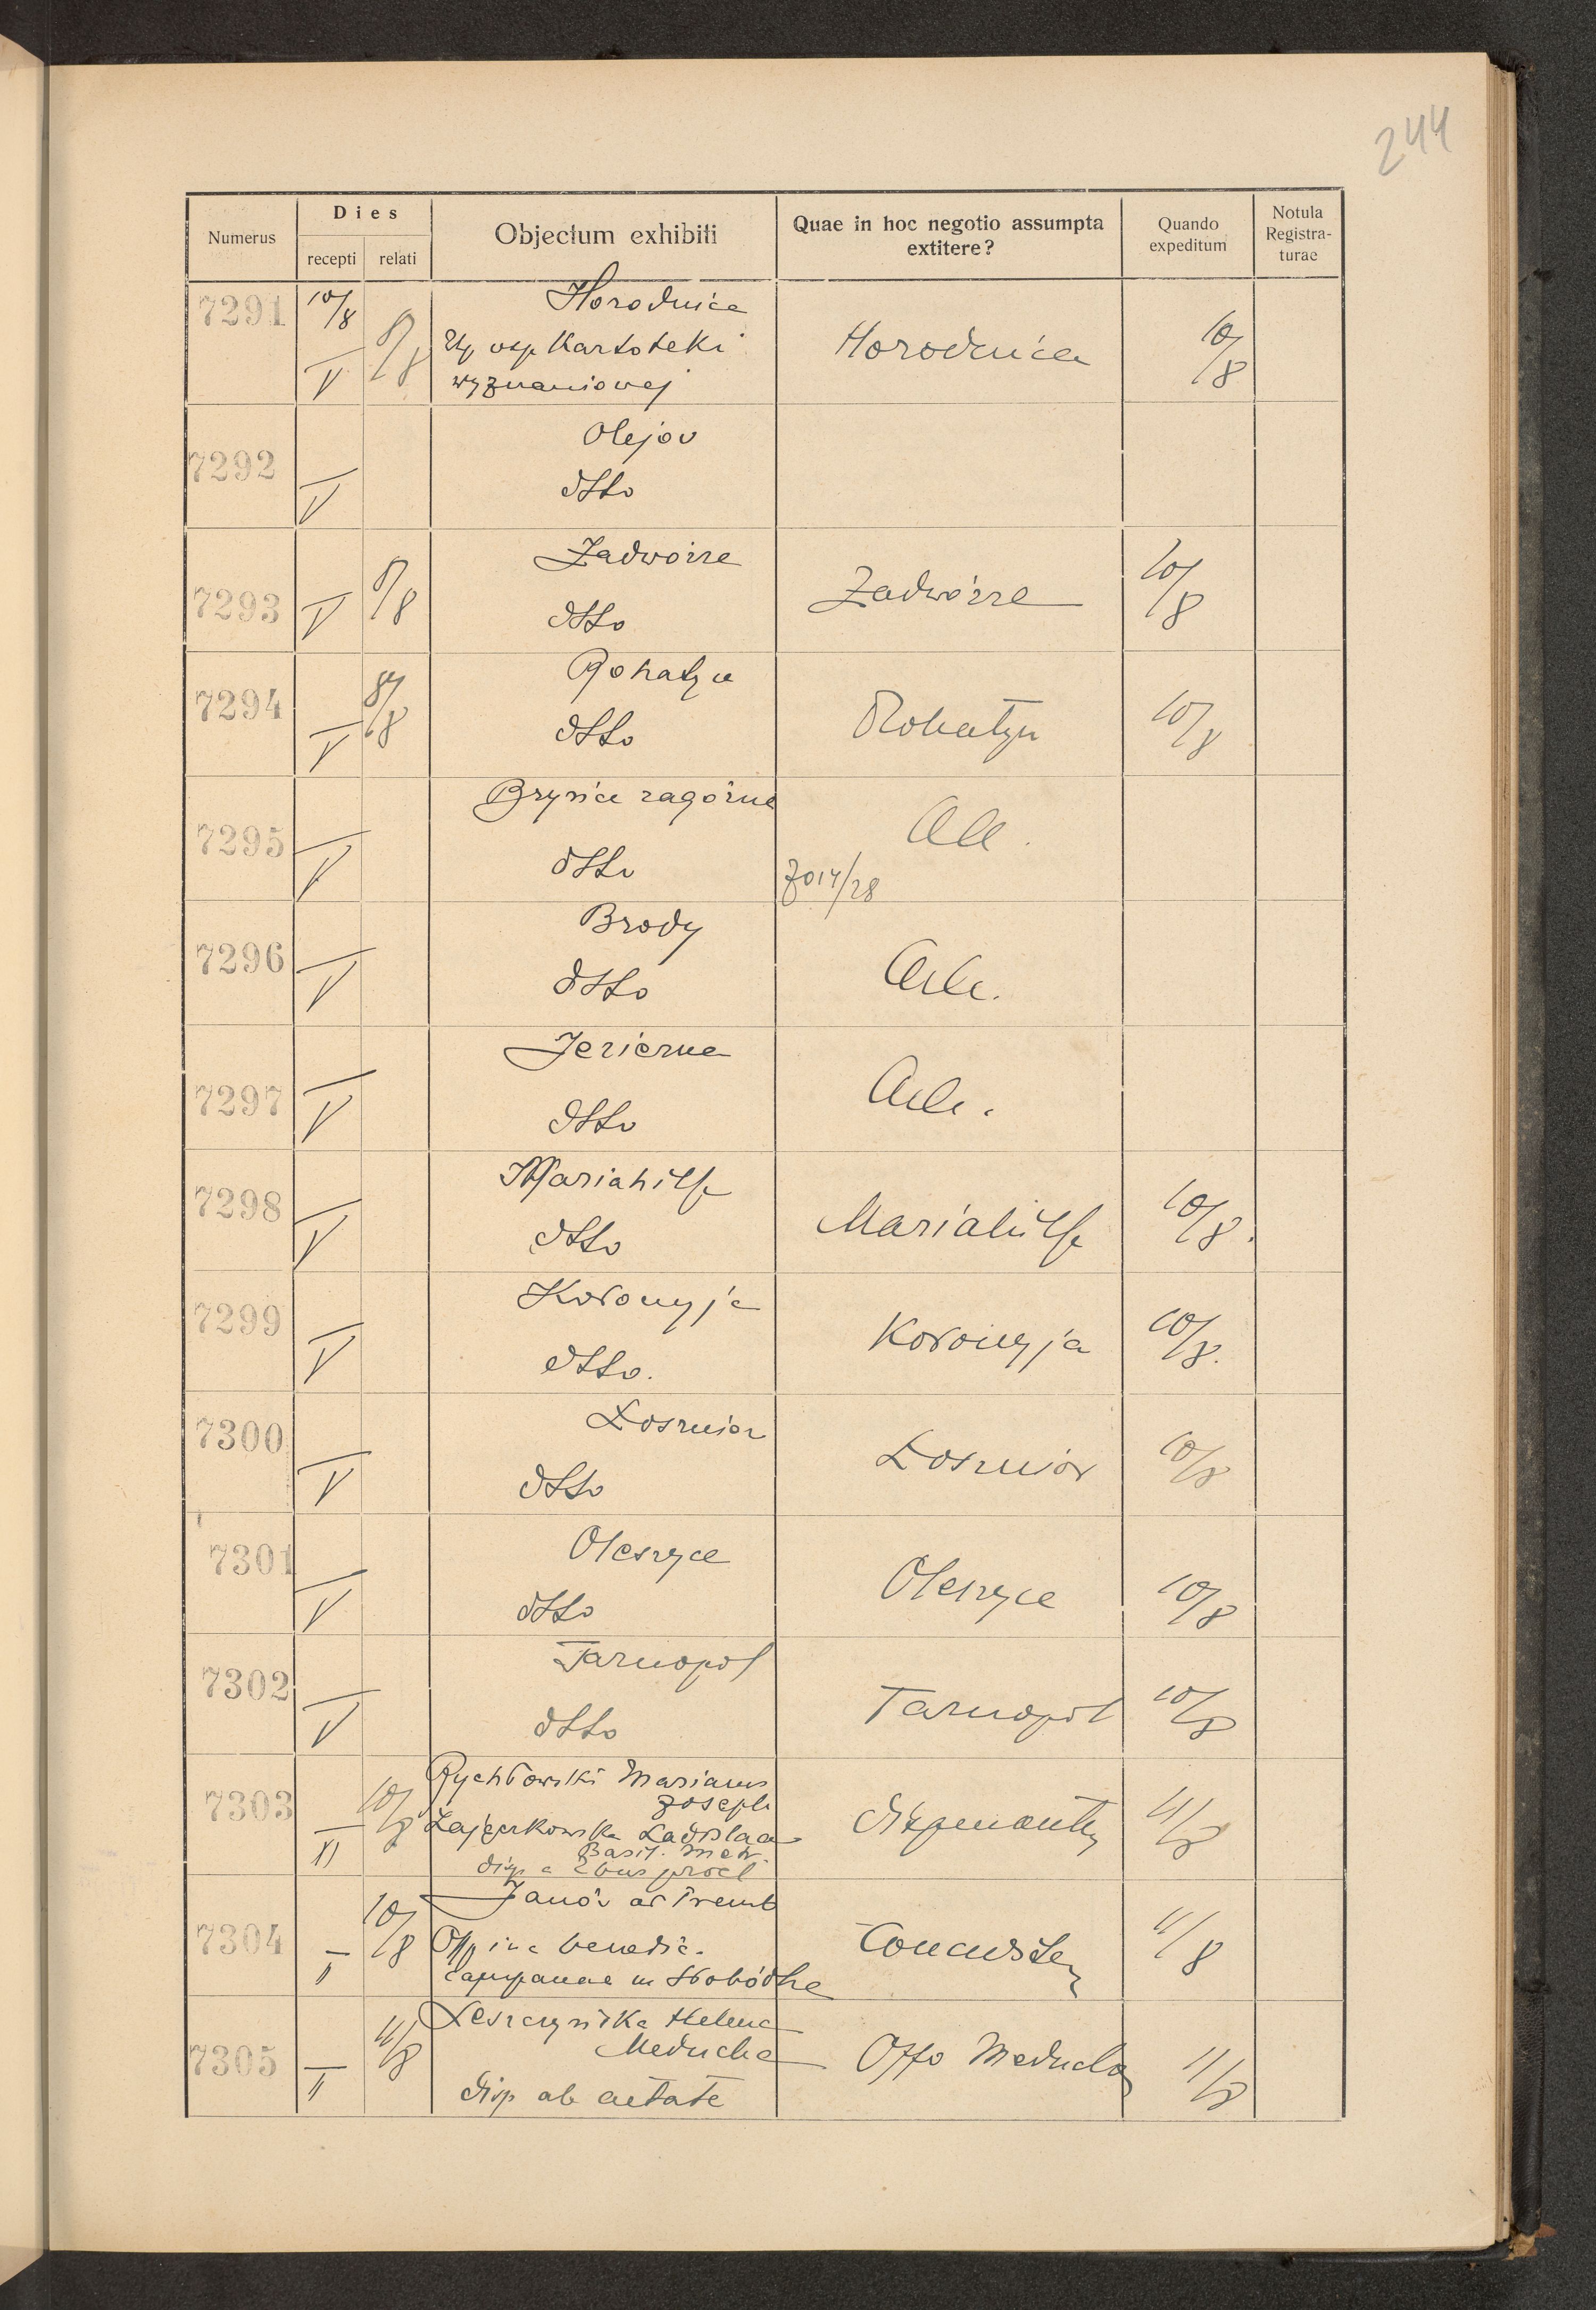 244
Numerus
Dies
recepti
relati
Objectum exhibiti
Quae in hoc negotio assumpta
extitere?
Quando
expeditum
Notula
Registra-
turae
7291 10/8 V 8/8
Horodnica
kartoteki
wyznaniowej
Horodnica
10/8
7292 V
Olejov
dtto
7293 V 8/8
Zadwórze
dtto
Zadwórze
10/8
7294 V 8/8
Rohatyn
dtto
Rohatyn
10/8
7295 V
Brzysice zagórne
dtto
7014/28
7296 V
Brody
dtto
7297 V
Jezierna
dtto
7298 V
Mariahilf
dtto
Mariahilf
10/8.
7299 V
Kołomyja
dtto.
Kołomyja
10/8.
7300 V
Łoszniów
dtto
Łosznióv
10/8
7301 V
Oleszyce
dtto
Oleszyce
10/8
7302 V
Tarnopol
dtto
Tarnopol
10/8
7303 II 10/8
Rychłowski Marianus
Joseph
Zajączkowska Ladislaa
Basil. metr.
disp a 2bus procl
11/8
7304 II 10/8
Janów ad Tremb
benedic.
campanae in Słobódka
11/8
7305 II 11/8
Leszczyńska Helena
Meducha
disp ab aetate
Offo Meducha
11/8